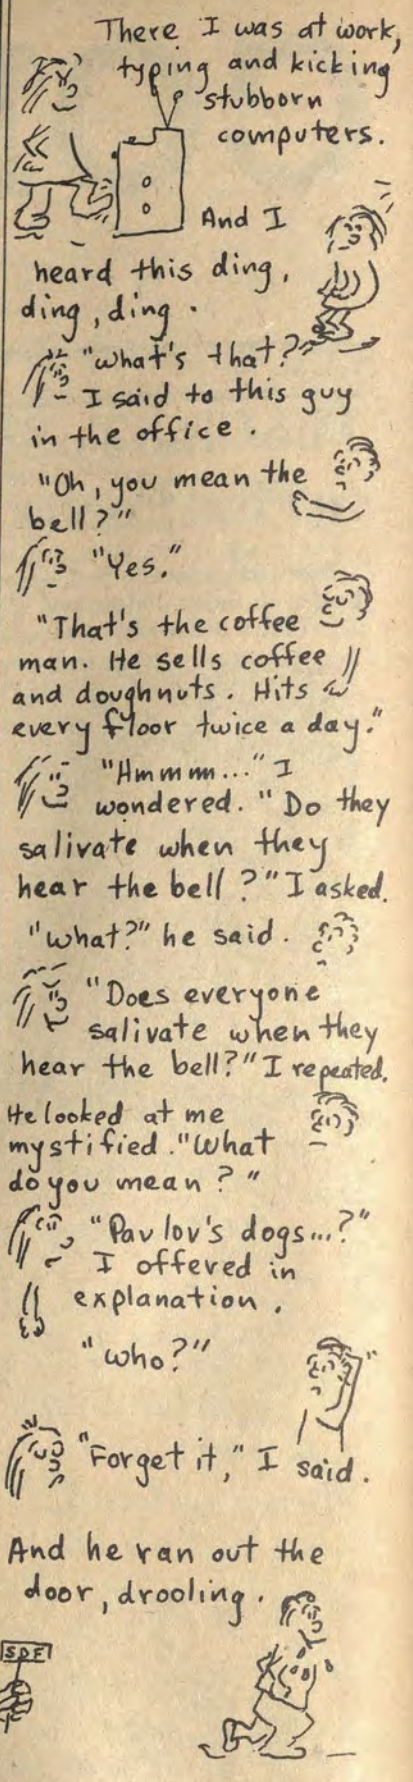 There I was at work,
typing and kicking
stubborn
computers.
And I
heard this ding,
ding, ding.
"What's that?"
I said to this guy
in the office.
"Oh, you mean the
bell?"
"Yes."
"That's the coffee
man. He sells coffee
and doughnuts. Hits
every floor twice a day."
"Hmmmm..." I
wondered. "Do they
salivate when they
hear the bell?" I asked.
"What?" he said.
"Does everyone
salivate when they
hear the bell?" I repeated.
He looked at me
mystified. "What
do you mean?"
"Pavlov's dogs...?"
I offered in
explanation.
"Who?"
"Forget it," I said.
And he ran out the
door, drooling.
SDF